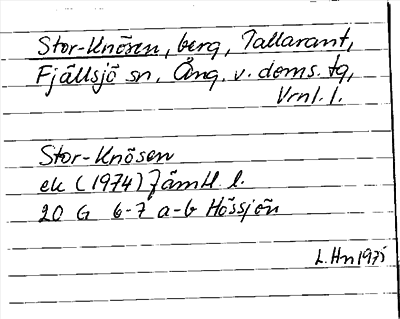 Stor-Knösen, berg, Tallarant,
Fjällsjö sn. Ång. v. doms. tg,
Vrnl. l.
Stor-Knösen
ek (1974) Jämtl. l.
20 G 6-7 a-b Hössjön
L. Hn 1975